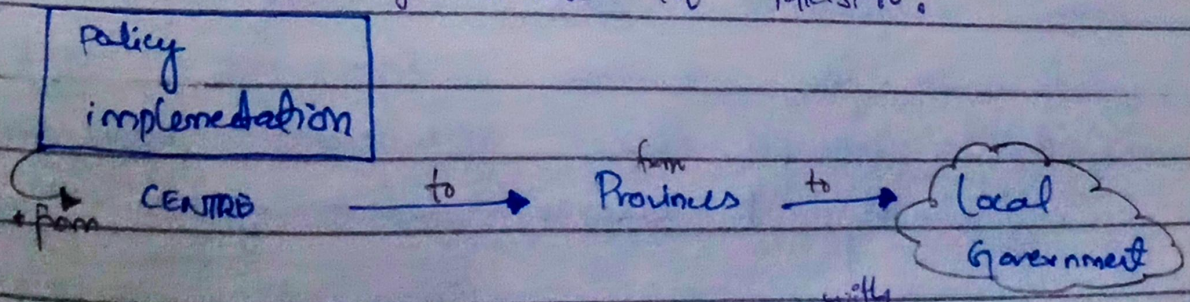 policy
implementation
from
CENTRE to from Provinces to Local
Government
with